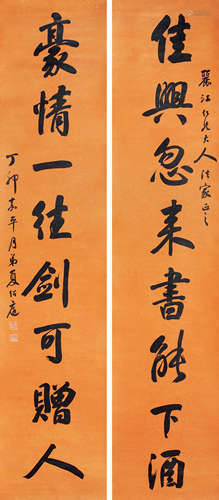 佳興忽來書能下酒
麗江仁兄大人法家正之
豪情一往劍可贈人
丁卯年月弟夏